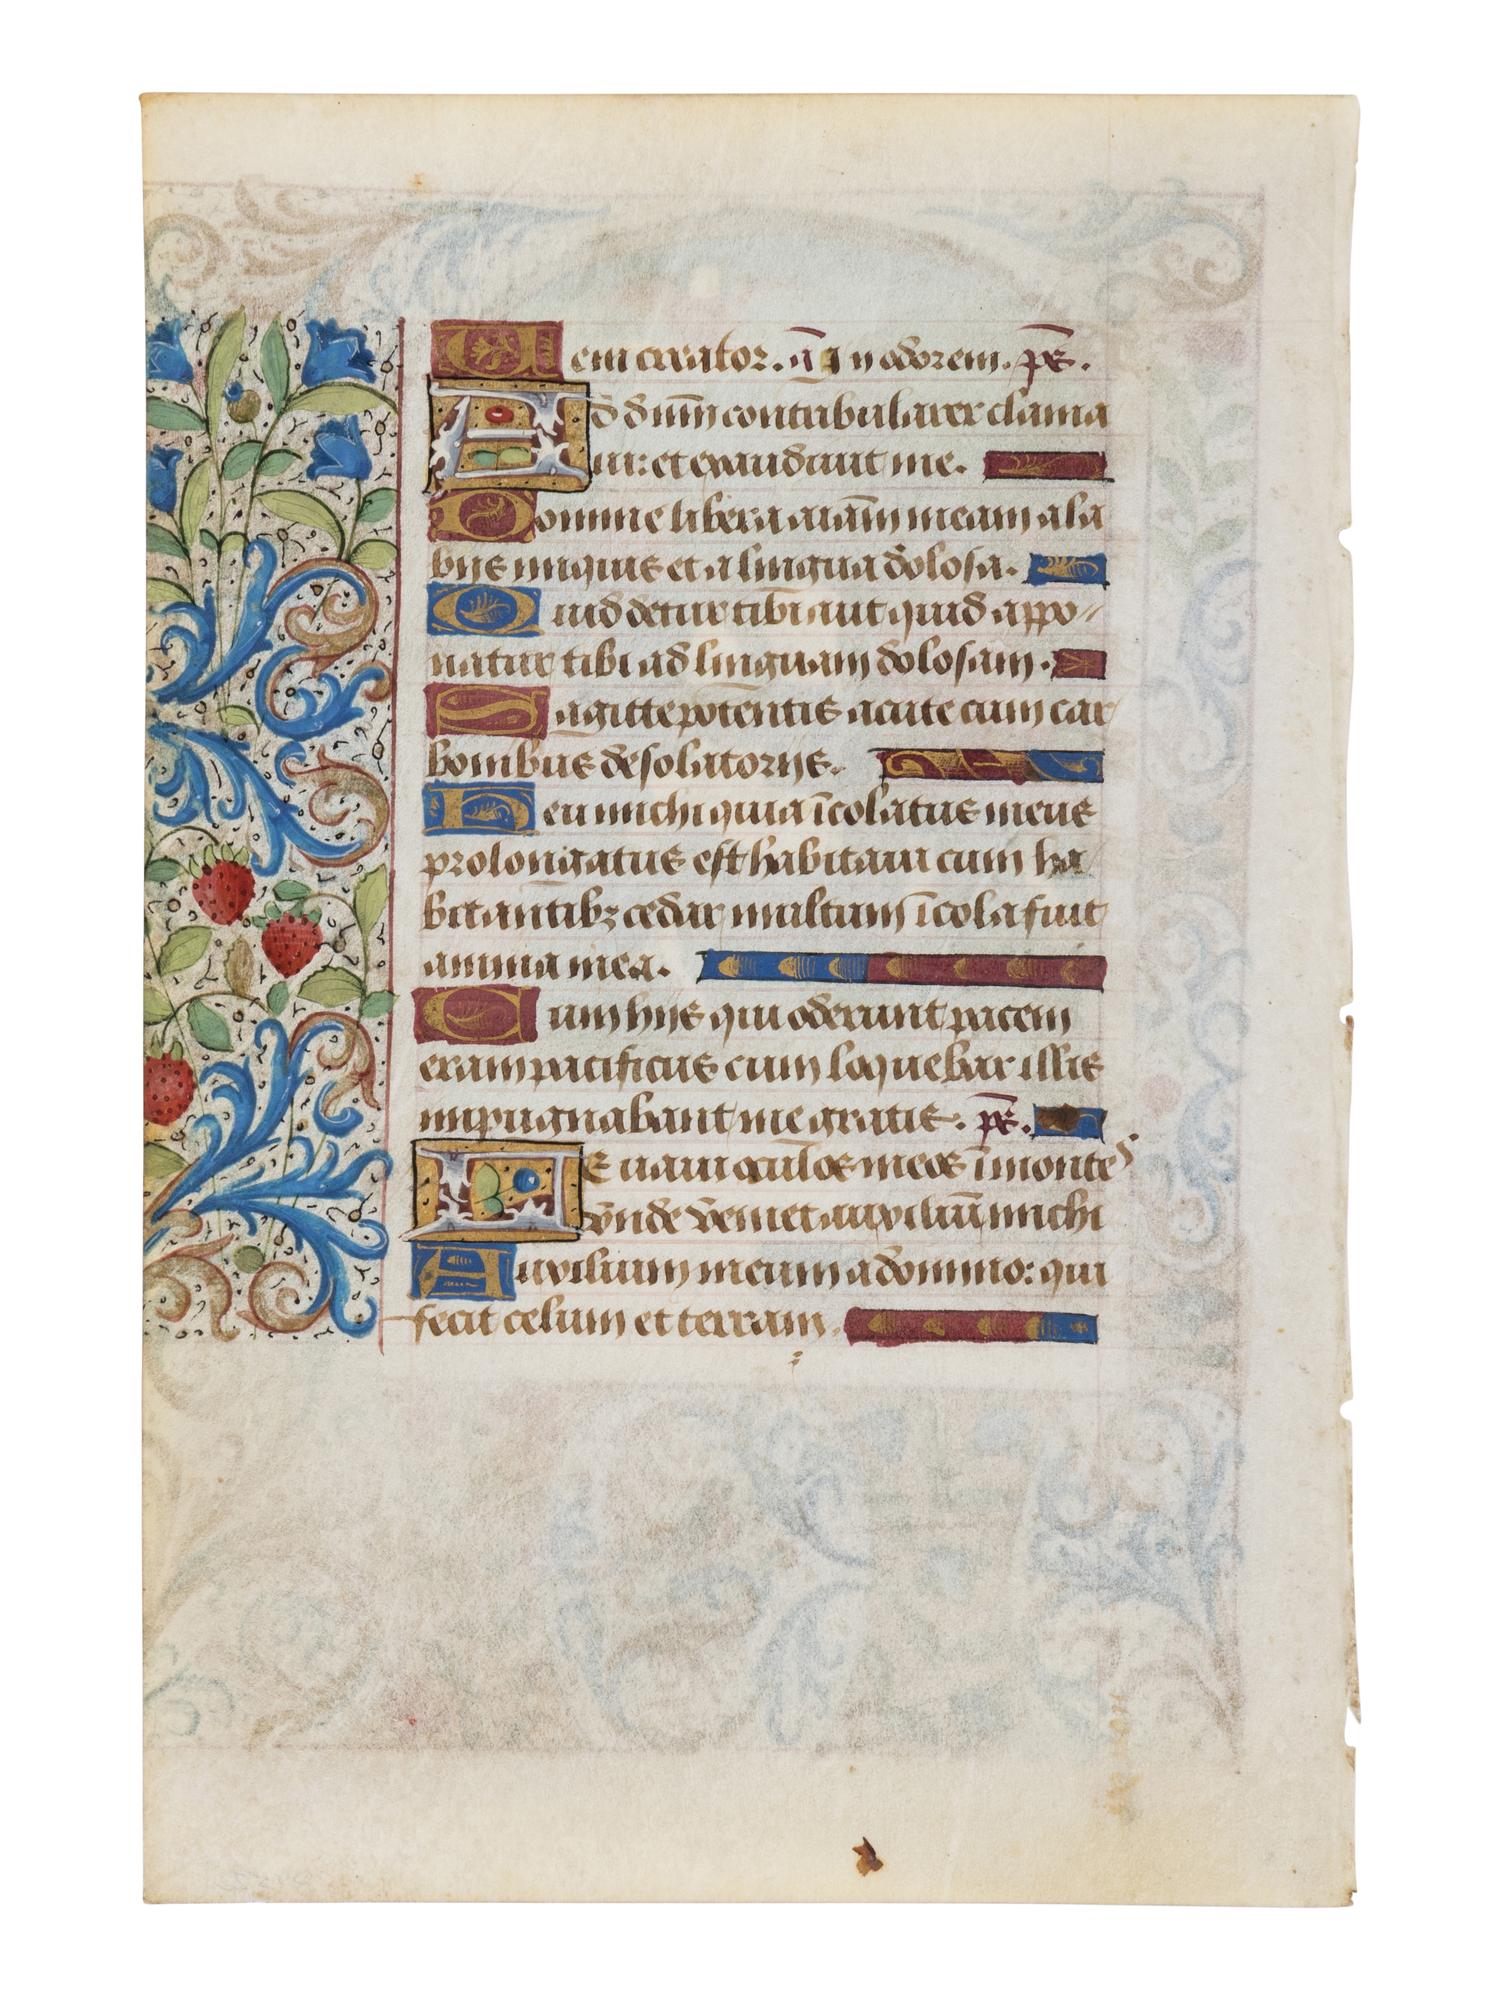 Veni creator. an̄ In odorem. ps̄.
Ad dn̄m cum contribularer clama
ui: et exaudiuit me.
Domine libera aīam meam a la
bijs iniquis et a lingua dolosa.
Quid detur tibi aut quid appo
natur tibi ad linguam dolosam.
Sagitte potentis acute cum car
bonibus desolatorijs.
Heu michi quia īcolatus meus
prolongatus est habitaui cum ha
bitantibz cedar multum īcola fuit
anima mea.
Cum hijs qui oderunt pacem
eram pacificus cum loquebar illis
impugnabant me gratis. ps̄.
Leuaui oculos meos ī montes
vnde veniet auxiliū michi
Auxilium meum a domino: qui
fecit celum et terram.